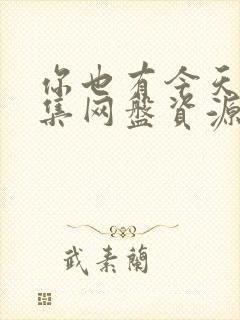 你也有今天
集网盘资源
武素蘭